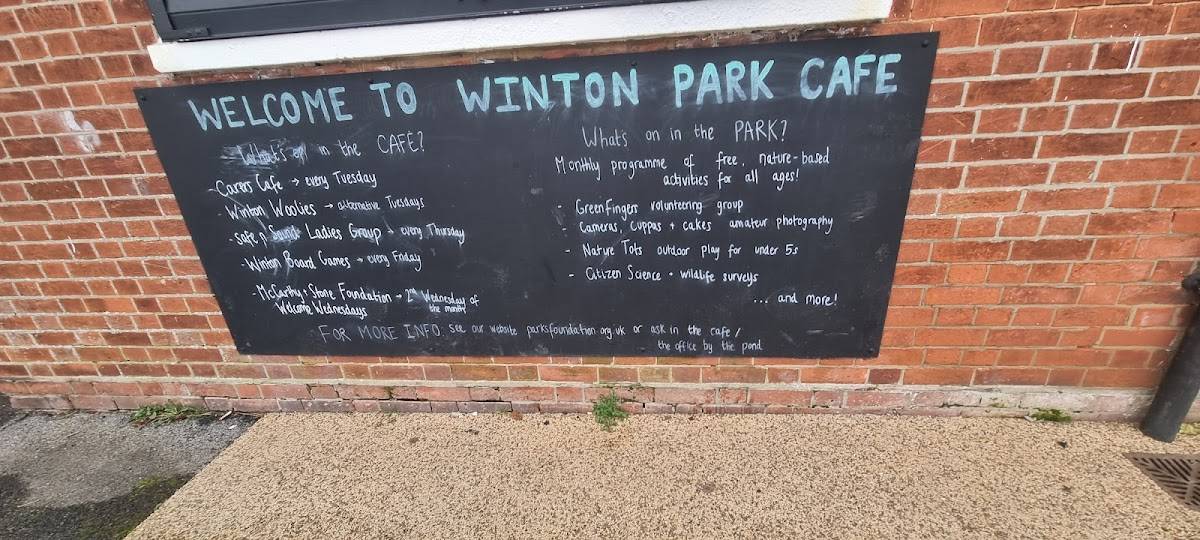 WELCOME TO WINTON PARK CAFE
What's on in the CAFE?
- Carers Cafe → every Tuesday
- Winton Woolies → alternative Tuesdays
- Safe & Sound Ladies Group → every Thursday
- Winton Board Games → every Friday
- McCarthy + Stone Foundation → 2nd Wednesday of the month
Welcome Wednesdays
What's on in the PARK?
Monthly programme of free, nature-based
activities for all ages!
- Greenfingers volunteering group
- Cameras, cuppas + cakes amateur photography
- Nature Tots outdoor play for under 5s
- Citizen Science + wildlife surveys
... and more!
FOR MORE INFO see our website parksfoundation.org.uk or ask in the cafe /
the office by the pond